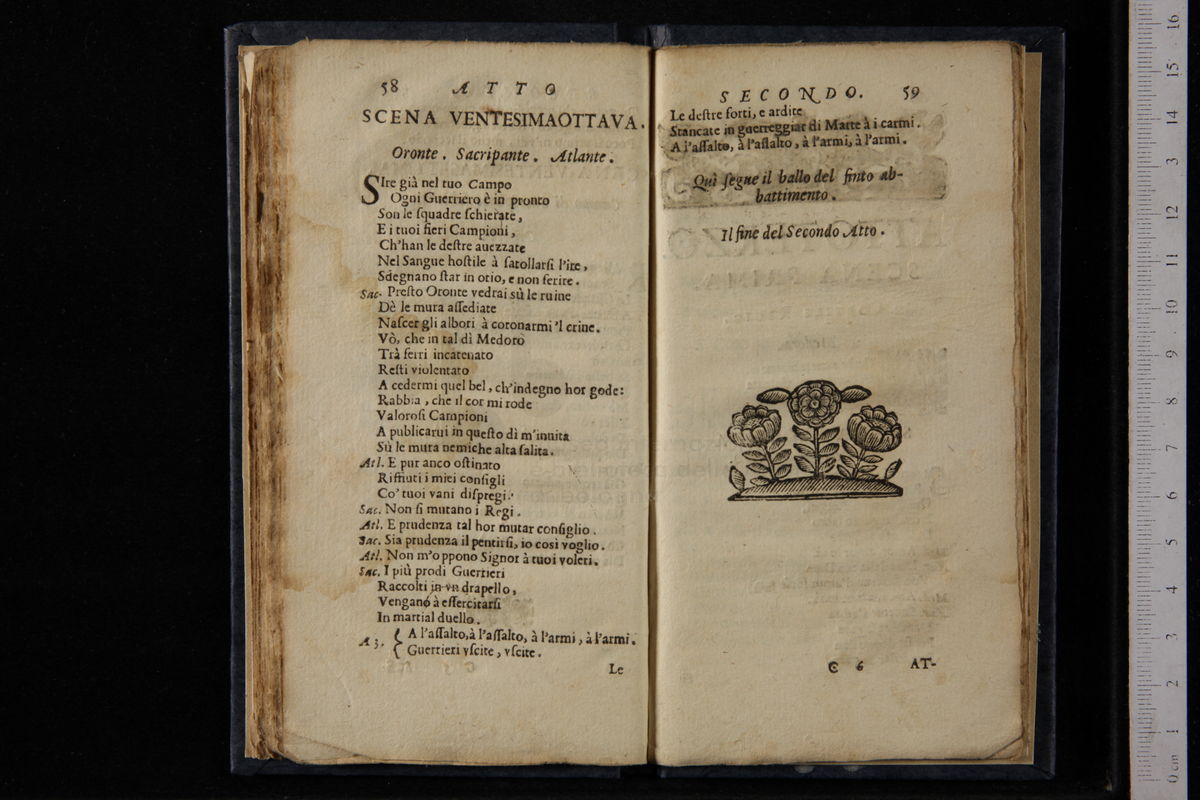 58 ATTO
SCENA VENTESIMAOTTAVA.
Oronte. Sacripante. Atlante.
SIre già nel tuo Campo
Ogni Guerriero è in pronto
Son le ſquadre ſchierate,
E i tuoi fieri Campioni,
Ch'han le deſtre auezzate
Nel Sangue hoſtile à ſatollarſi l'ire,
Sdegnano ſtar in otio, e non ferire.
Sac. Preſto Oronte vedrai sù le ruine
Dè le mura aſſediate
Naſcer gli albori à coronarmi 'l crine.
Vò, che in tal dì Medoro
Trà ferri incatenato
Reſti violentato
A cedermi quel bel, ch'indegno hor gode:
Rabbia, che il cor mi rode
Valoroſi Campioni
A publicarui in queſto dì m'inuita
Sù le mura nemiche alta ſalita.
Atl. E pur anco oſtinato
Rifiuti i miei conſigli
Co' tuoi vani diſpregi.
Sac. Non ſi mutano i Regi.
Atl. E prudenza tal hor mutar conſiglio.
Sac. Sia prudenza il pentirſi, io così voglio.
Atl. Non m'oppono Signor à tuoi voleri.
Sac. I più prodi Guerrieri
Raccolti in vn drapello,
Vengano à eſſercitarſi
In martial duello.
A 3. { A l'aſſalto, à l'aſſalto, à l'armi, à l'armi.
{ Guerrieri vſcite, vſcite.
Le
SECONDO. 59
Le deſtre forti, e ardite
Stancate in guerreggiar di Marte à i carmi.
A l'aſſalto, à l'aſſalto, à l'armi, à l'armi.
Quì ſegue il ballo del finto ab-
battimento.
Il fine del Secondo Atto.
C 6 AT-
0 cm 1 2 3 4 5 6 7 8 9 10 11 12 13 14 15 16